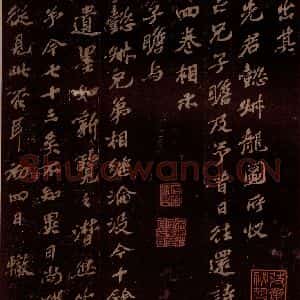 出其
先君懿叔龍圖所收
兄子瞻及予昔日往還詩
四卷相示
子瞻與
懿叔兄弟相繼淪沒今十餘
遺墨如新覽之潸
予今七十三矣不知異日尚
從見此否耳 初四日 轍
Shufawang.CN